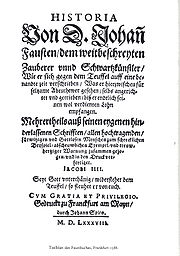 HISTORIA
Von D. Johañ
Fausten/ dem weitbeschreyten
Zauberer vnnd Schwartzkünstler/
Wie er sich gegen dem Teuffel auff eine be-
nandte zeit verschrieben/ Was er hierzwischen für
seltzame Abentheuwer gesehen/ selbs angerich-
tet vnd getrieben/ biß er endtlich sei-
nen wol verdienten Lohn
empfangen.
Mehrertheils auß seinen eygenen hin-
derlassenen Schrifften/ allen hochtragenden/
fürwitzigen vnd Gottlosen Menschen zum schrecklichen
Beyspiel/ abscheuwlichen Exempel/ vnd trew-
hertziger Warnung zusammen gezo-
gen/ vnd in den Druck ver-
fertiget.
IACOBI IIII.
Seyt Gott vnterthänig/ widerstehet dem
Teuffel/ so fleuhet er von euch.
CVM GRATIA ET PRIVILEGIO.
Gedruckt zu Franckfurt am Mayn/
durch Johann Spies.
M. D. LXXXVIII.
Titelblatt des Faustbuches, Frankfurt 1588.